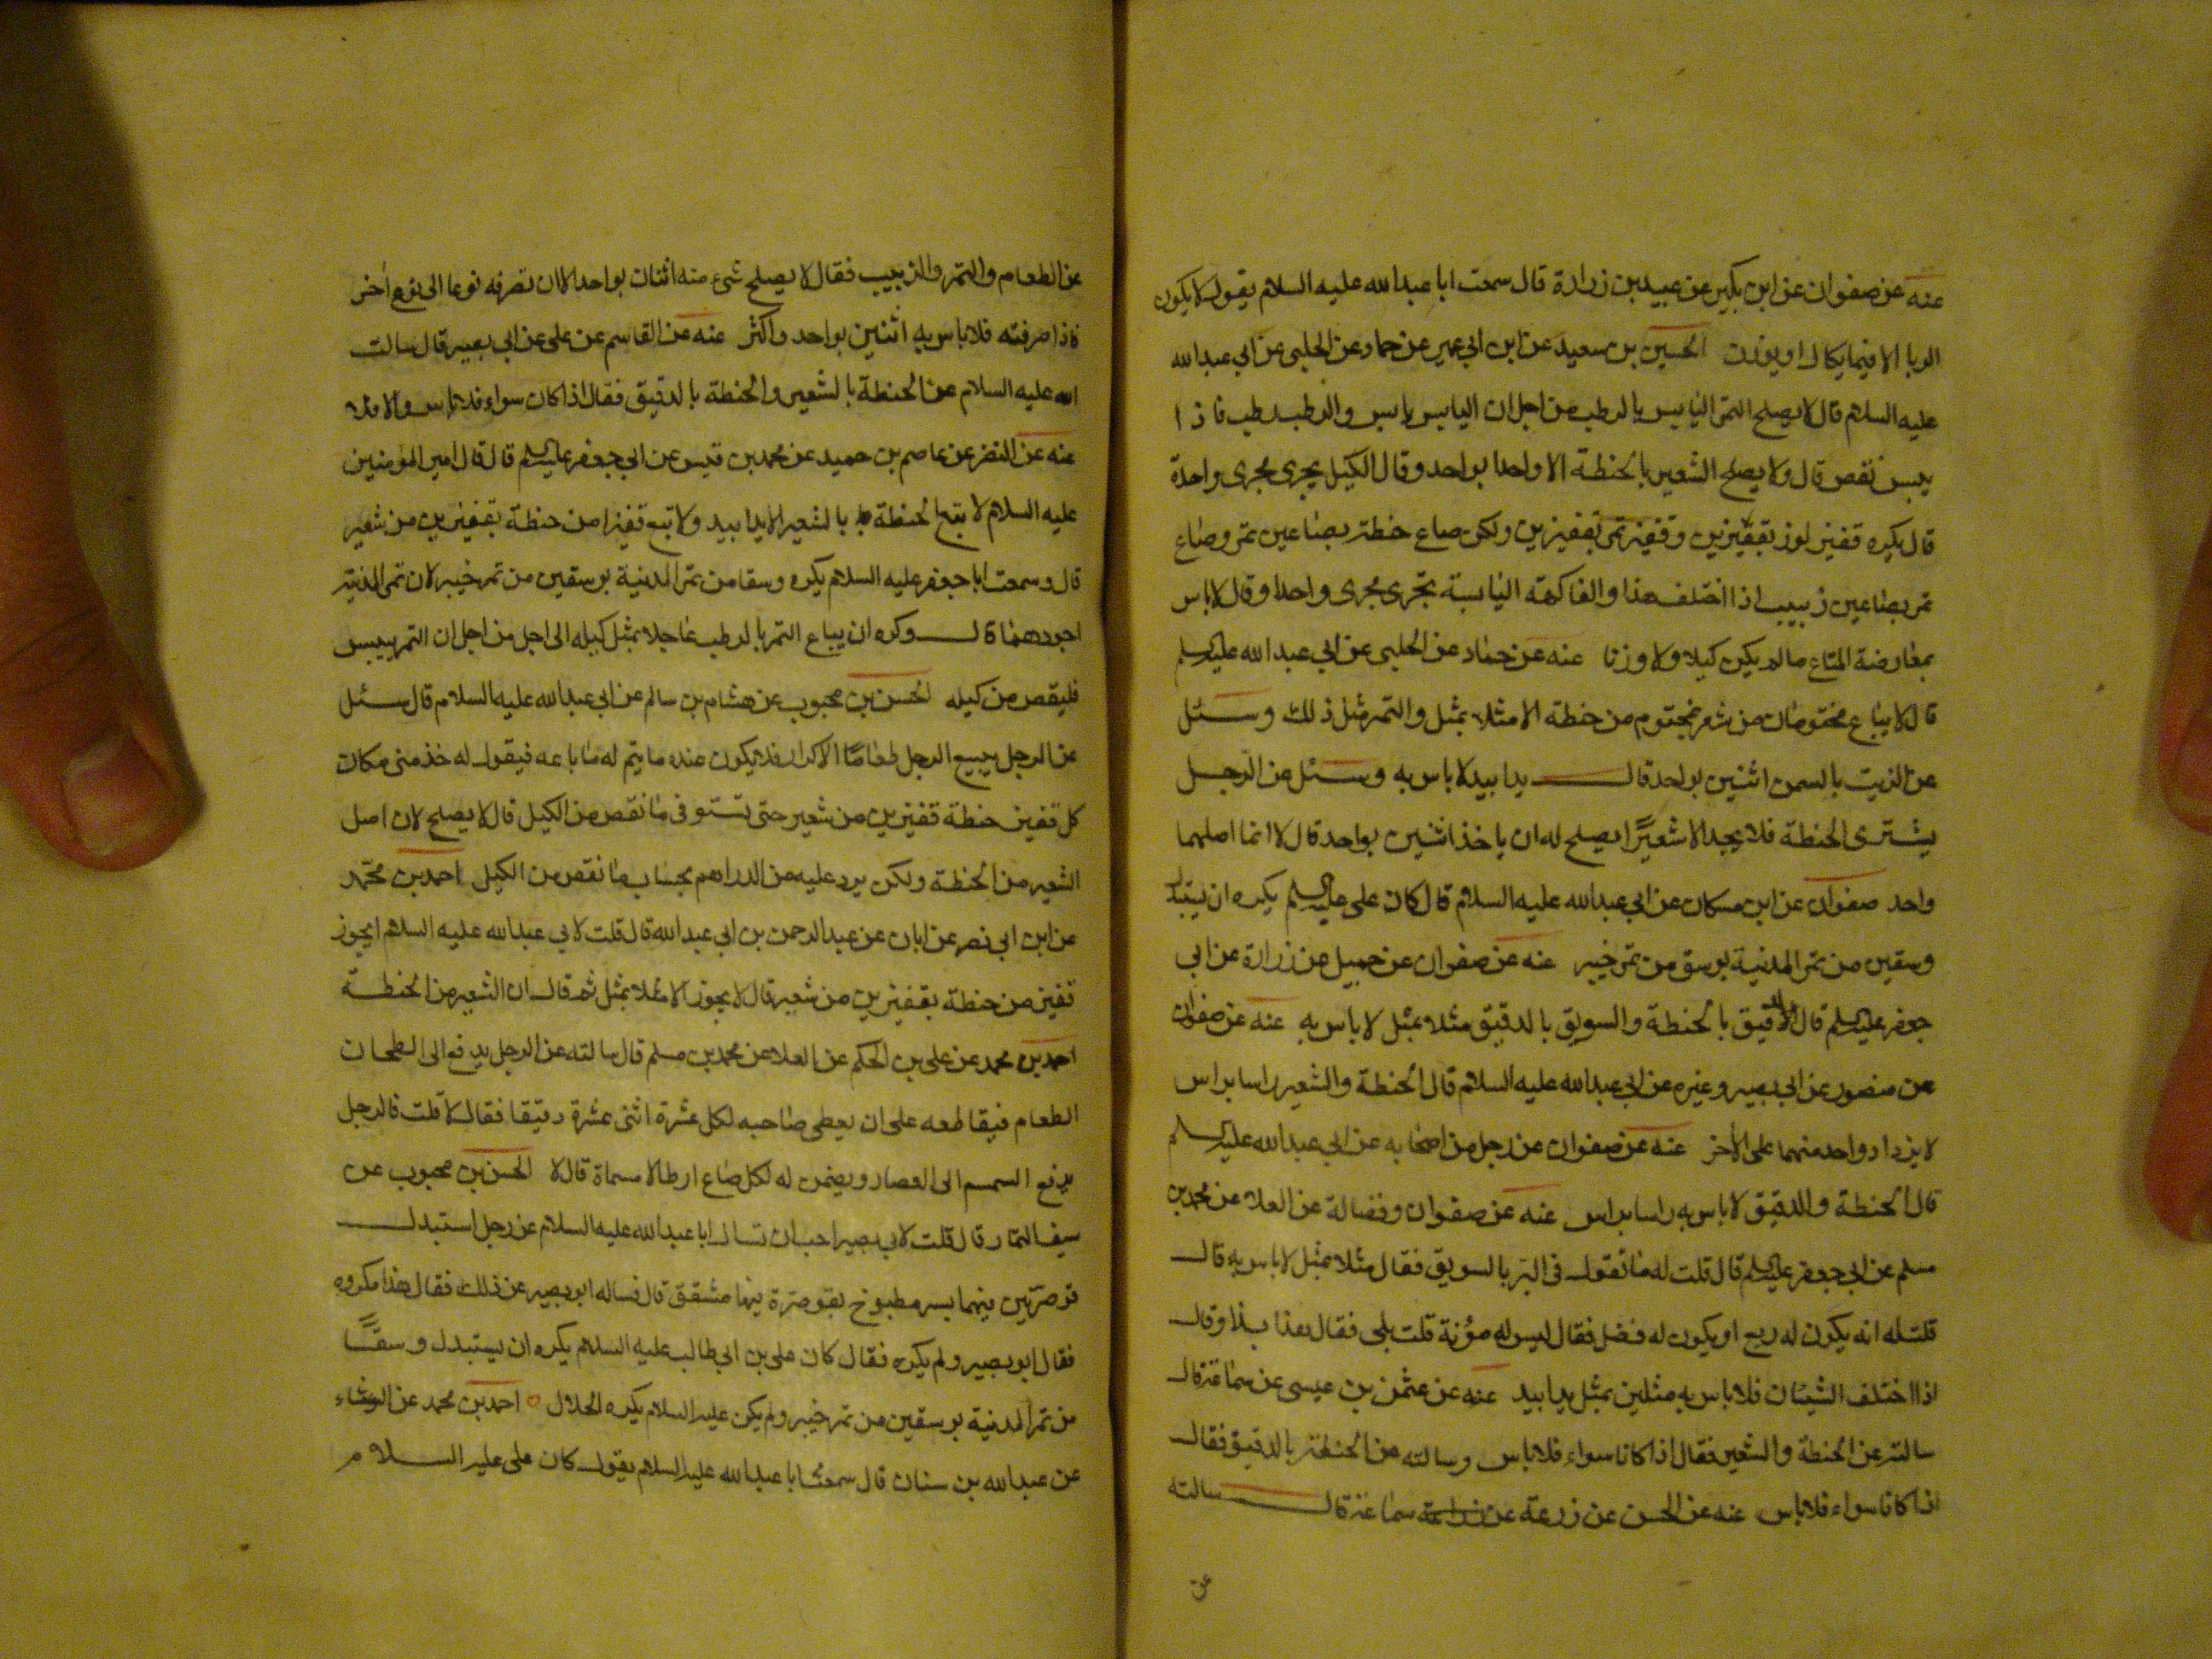 عنه عن صفوان عن ابن بكير عن عبيد بن زرارة قال سمعت ابا عبدالله عليه السلام يقول لا يكون
الربا الا فيما يكال او يوزن الحسين بن سعيد عن ابن ابي عمير عن حماد عن الحلبي عن ابي عبدالله
عليه السلام قال لا يصلح التمر اليابس بالرطب من اجل ان اليابس يابس والرطب رطب فاذا
يبس نقص قال ولا يصلح الشعير بالحنطة الا واحدا بواحد وقال الكيل يجري مجرى واحدة
قال يكره قفيز لوز بقفيزين وقفيز تمر بقفيزين ولكن صاع حنطة بصاعين تمر وصاع
تمر بصاعين زبيب اذا اختلف هذا والفاكهة اليابسة تجرى مجرى واحدا وقال لاباس
بمعارضة المتاع مالم يكن كيلا ولا وزنا عنه عن حماد عن الحلبي عن ابي عبدالله عليه السلم
قال لا يباع مختومان من شعير بمختوم من حنطة الا مثلا بمثل والتمر مثل ذلك وسئل
عن الزيت بالسمن اثنين بواحد قال يدا بيد لاباس به وسئل عن الرجل
يشترى الحنطة فلا يجد الا شعيرًا ايصلح له ان ياخذ اثنين بواحد قال لا انما اصلهما
واحد صفوان عن ابن مسكان عن ابي عبدالله عليه السلام قال كان على عليه السلم يكره ان يستبدل
وسقين من تمر المدنية بوسق من تمر خيبر عنه عن صفوان عن جميل عن زرارة عن ابي
جعفر عليه السلم قال الدقيق بالحنطة والسويق بالدقيق مثلا بمثل لا باس به عنه عن صفوان
عن منصور عن ابي بصير وغيره عن ابي عبدالله عليه السلام قال الحنطة والشعير راسا براس
لا يزداد واحد منهما على الاخر عنه عن صفوان عن رجل من اصحابه عن ابي عبدالله عليه السلم
قال الحنطة والدقيق لاباس به راسا براس عنه عن صفوان وفضالة عن العلا عن محمد بن
مسلم عن ابي جعفر عليه السلم قال قلت له ما تقول في البر بالسويق فقال مثلا بمثل لاباس به قال
قلت له انه يكون له ريع او يكون له فضل فقال ليس له مؤنة قلت بلى فقال هذا بذا وقال
اذا اختلف الشيئان فلاباس به مثلين بمثل يدا بيد عنه عن عثمن بن عيسى عن سماعة قال
سالته عن الحنطة والشعير فقال اذا كانا سواء فلاباس وسالته عن الحنطة بالدقيق فقال
اذا كانا سواء فلاباس عنه عن الحسن عن زرعة عن سماعة قال سالته
عن
عن الطعام والتمر والزبيب فقال لا يصلح شئ منه اثنان بواحد الا ان تصرفه نوعا الى نوع اخر
فاذا صرفته فلاباس به اثنين بواحد واكثر عنه عن القاسم عن على عن ابي بصير قال سالت
الله عليه السلام عن الحنطة بالشعير والحنطة بالدقيق فقال اذا كان سواء فلاباس والا فلا
عنه عن النضر عن عاصم بن حميد عن محمد بن قيس عن ابي جعفر عليه السلم قال قال امير المومنين
عليه السلام لا تبع الحنطة بالشعير الا يدا بيد ولا تبع قفيزا من حنطة بقفيزين من شعير
قال وسمعت ابا جعفر عليه السلام يكره وسقا من تمر المدنية بوسقين من تمر خيبر لان تمر المدنية
اجودهما قال وكره ان يباع التمر بالرطب عاجلا بمثل كيله الى اجل من اجل ان التمر ييبس
فلينقص من كيله الحسن بن محبوب عن هشام بن سالم عن ابي عبدالله عليه السلام قال سئل
عن الرجل يبيع الرجل طعامًا الاكرار فلا يكون عنده ما يتم له ما باعه فيقول له خذ منى مكان
كل قفيز حنطة قفيزين من شعير حتى تستوفى ما نقص من الكيل قال لا يصلح لان اصل
الشعير من الحنطة ولكن يرد عليه من الدراهم بحساب ما نقص من الكيل احمد بن محمد
عن ابن ابي نصر عن ابان عن عبدالرحمن بن ابي عبدالله قال قلت لابي عبدالله عليه السلام ايجوز
قفيز من حنطة بقفيزين من شعير قال لا يجوز الا مثلا بمثل ثم قال ان الشعير من الحنطة
احمد بن محمد عن على بن الحكم عن العلا عن محمد بن مسلم قال سالته عن الرجل يدفع الى الطحان
الطعام فيقاطعه على ان يعطى صاحبه لكل عشرة اثنى عشرة دقيقا فقال لا قلت فالرجل
يدفع السمسم الى العصار ويضمن له لكل صاع ارطالا مسماة قال لا الحسن بن محبوب عن
سيف التمار قال قلت لابي بصير احب ان تسال ابا عبدالله عليه السلام عن رجل استبدل
قوصرتين فيهما بسر مطبوخ بقوصرة فيها مشقق قال فساله ابو بصير عن ذلك فقال هذا مكروه
فقال ابو بصير ولم يكره فقال كان على بن ابي طالب عليه السلام يكره ان يستبدل وسقًا
من تمر المدنية بوسقين من تمر خيبر ولم يكن عليه السلام يكره الحلال احمد بن محمد عن الوشاء
عن عبدالله بن سنان قال سمعت ابا عبدالله عليه السلام يقول كان على عليه السلام